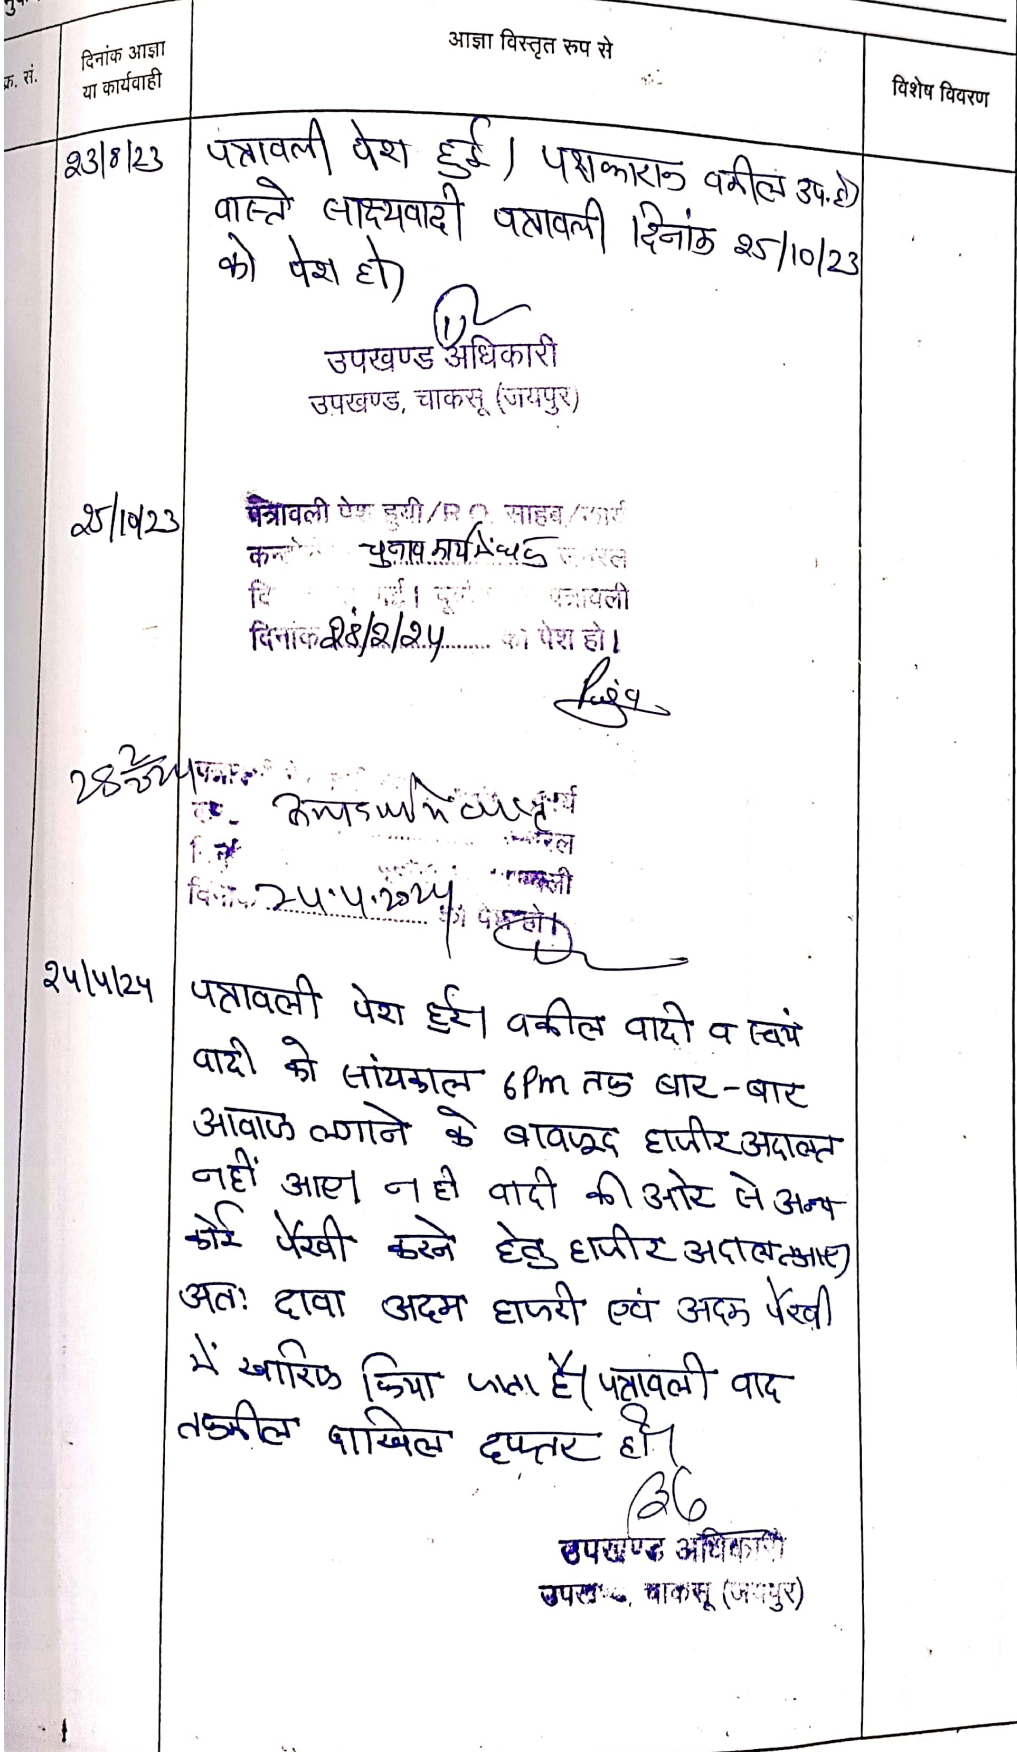 क्र. सं.
दिनांक आज्ञा
या कार्यवाही
आज्ञा विस्तृत रुप से
विशेष विवरण
23/8/23
पत्रावली पेश हुई। पक्षकारान वकील उप. है।
वास्ते साक्ष्यवादी पत्रावली दिनांक 25/10/23
को पेश हो।
उपखण्ड अधिकारी
उपखण्ड, चाकसू (जयपुर)
25/10/23
पत्रावली पेश हुयी/R.O. साहब/कार्य
चुनाव कार्य में
पत्रावली
दिनांक 28/2/24 को पेश हो।
28/2/24
24.4.2024 को पेश हो।
24/4/24
पत्रावली पेश हुई। वकील वादी व स्वयं
वादी को सांयकाल 6Pm तक बार-बार
आवाज लगाने के बावजूद हाजीर अदालत
नहीं आए। न ही वादी की ओर से अन्य
कोई पैरवी करने हेतु हाजीर अदालत आए।
अतः दावा अदम हाजरी एवं अदम पैरवी
में खारिज किया जाता है। पत्रावली वाद
तकमील दाखिल दफ्तर हो।
उपखण्ड अधिकारी
उपखण्ड, चाकसू (जयपुर)